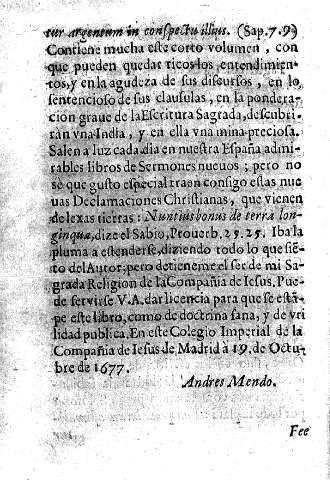 tur argentum in conspectu illius. (Sap. 7. 9.)
Contiene mucha este corto volumen, con
que pueden quedar ricos los entendimien-
tos, y en la agudeza de sus discursos, en lo
sentencioso de sus clausulas, en la pondera-
cion graue de la Escritura Sagrada, descubri-
ràn vna India, y en ella vna mina preciosa.
Salen a luz cada dia en nuestra España admi-
rables libros de Sermones nueuos; pero no
se que gusto especial traen consigo estas nue
uas Declamaciones Christianas, que vienen
de lexas tierras: Nuntius bonus de terra lon-
ginqua, dize el Sabio, Prouerb. 25. 25. Iba la
pluma a estenderse, diziendo todo lo que sie-
to del Autor; pero detieneme el ser de mi Sa-
grada Religion de la Compañia de Iesus. Pue-
de servirse V. A. dar licencia para que se estã-
pe este libro, como de doctrina sana, y de vti
lidad publica. En este Colegio Imperial de la
Compañia de Iesus de Madrid à 19. de Octu-
bre de 1677.
Andres Mendo.
Fee